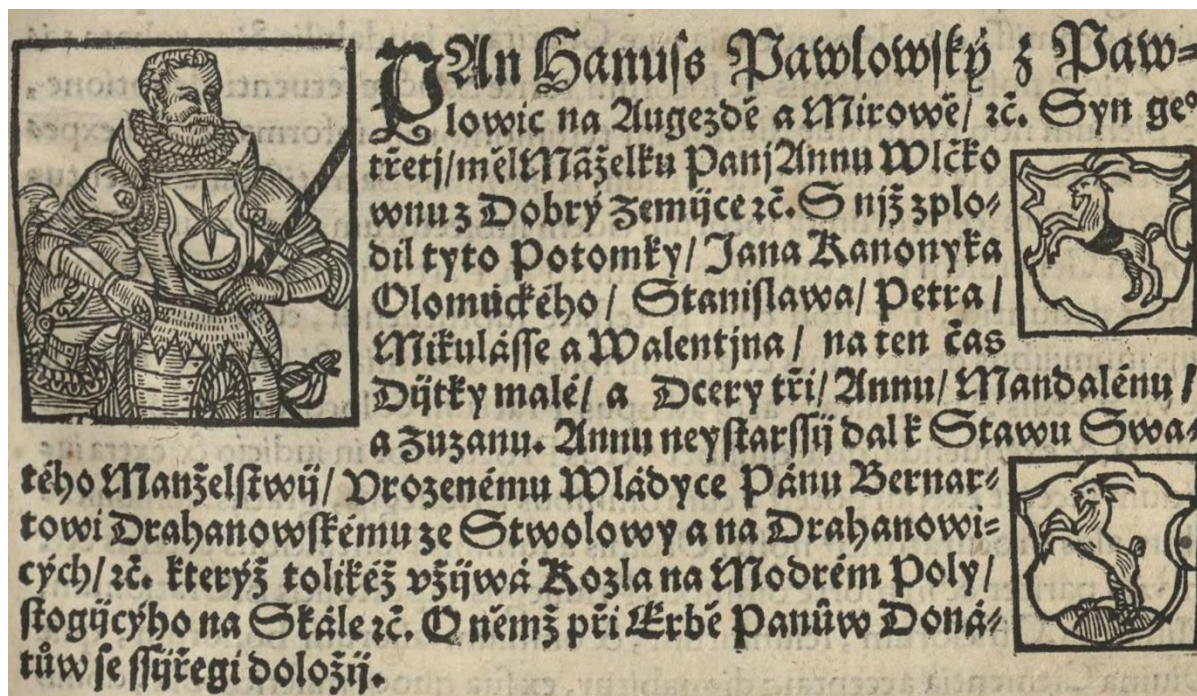 PAn Hanuſs Pawlowſký z Paw⸗
lowic na Augezdě a Mirowě/ ꝛč. Syn ge⸗
třetj/ měl Mãželku Panj Annu Wlčko
wnu z Dobrý Zemijce ꝛč. S njž zplo⸗
dil tyto Potomky/ Jana Kanonyka
Olomúckého/ Staniſlawa/ Petra/
Mikuláſſe a Walentjna/ na ten čas
Dijtky malé/ a Dcery tři/ Annu/ Mandalénu/
a Zuzanu. Annu neyſtarſſij dal k Stawu Swa⸗
tého Manželſtwij/ Vrozenému Wládyce Pánu Bernar⸗
towi Drahanowſkému ze Stwolowy a na Drahanowi⸗
cých/ ꝛč. kterýž tolikéž vžijwá Kozla na Modrém Poly/
ſtogijcýho na Skále ꝛč. O němž při Erbě Panůw Doná⸗
tůw ſe ſſijřegi doložij.